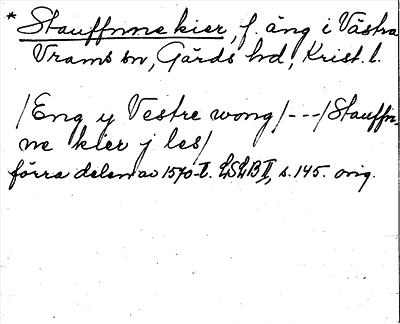 * Stauffnne kier, f. äng i Västra
Vrams sn, Gärds hd, Krist. l.
/Eng y Vestre wong/---/Stauffn-
ne kier j les/
förra delen av 1570-t. LSLB II, s. 145. orig.